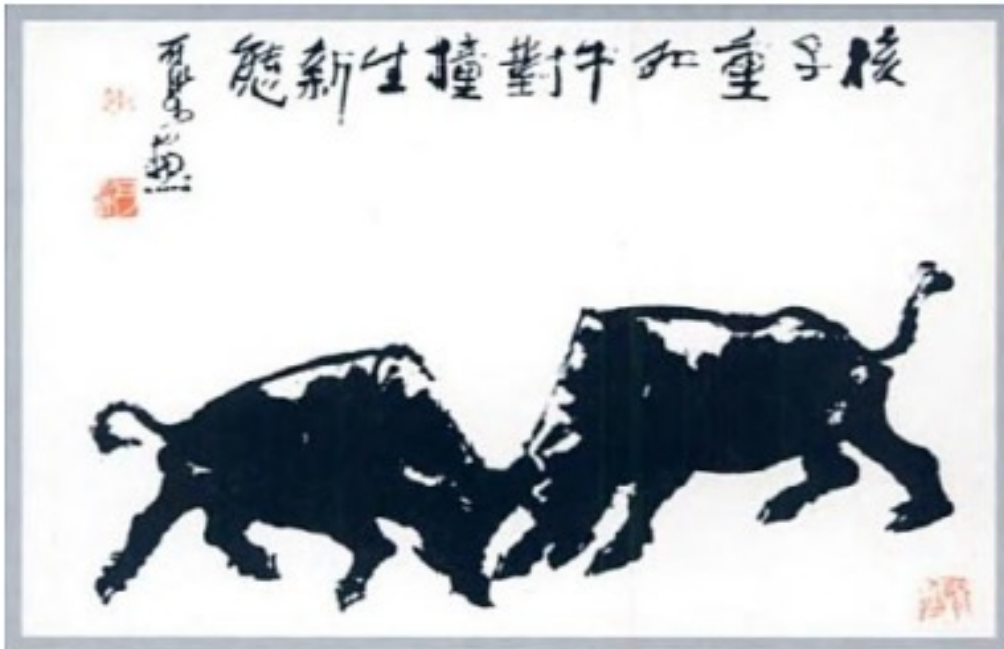 核子重如牛對撞生新態
可染